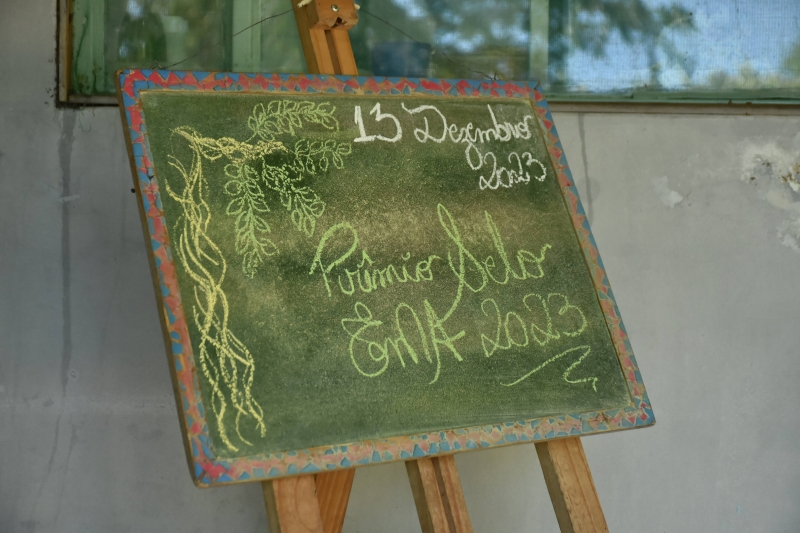 13 Dezembro
2023
Prêmio Selo
EmA 2023